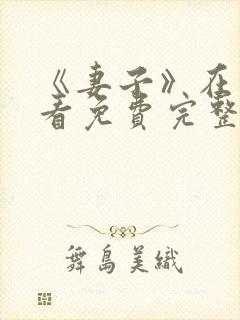 《妻子》在
看免费完整
舞島美織